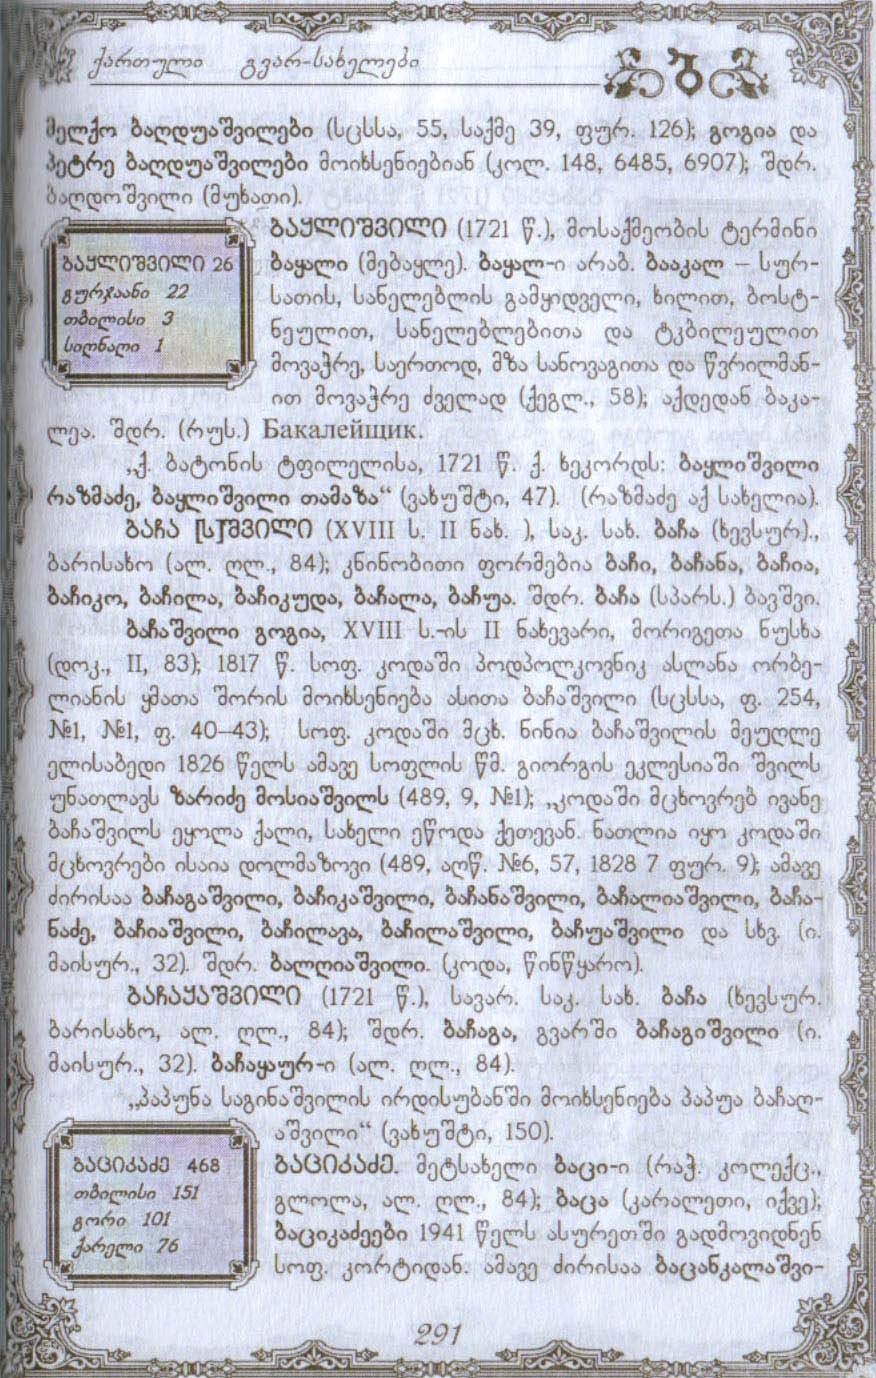 ქართული გვარ-სახელები
მელქო ბაღდუაშვილები (სცსსა, 55, საქმე 39, ფურ. 126); გოგია და
პეტრე ბაღდუაშვილები მოიხსენიებიან (კოლ. 148, 6485, 6907); შდრ.
ბაღდოშვილი (მუხათი).
ბაყლიშვილი 26
გურჯაანი 22
თბილისი 3
სიღნაღი 1
ბაყლიშვილი (1721 წ.), მოსაქმეობის ტერმინი
ბაყალი (მებაყლე). ბაყალ-ი არაბ. ბააკალ – სურ-
სათის, სანელებლის გამყიდველი, ხილით, ბოსტ-
ნეულით, სანელებლებითა და ტკბილეულით
მოვაჭრე, საერთოდ, მზა სანოვაგითა და წვრილმან-
ით მოვაჭრე ძველად (ქეგლ., 58); აქდედან ბაკა-
ლეა. შდრ. (რუს.) Бакалейщик.
„ქ. ბატონის ტფილელისა, 1721 წ. ქ. ხეკორდს: ბაყლიშვილი
რაზმაძე, ბაყლიშვილი თამაზა“ (ვახუშტი, 47). (რაზმაძე აქ სახელია).
ბაჩა [ს]შვილი (XVIII ს. II ნახ. ), საკ. სახ. ბაჩა (ხევსურ).,
ბარისახო (ალ. ღლ., 84); კნინობითი ფორმებია ბაჩი, ბაჩანა, ბაჩია,
ბაჩიკო, ბაჩილა, ბაჩიკუდა, ბაჩალა, ბაჩუა. შდრ. ბაჩა (სპარს.) ბავშვი.
ბაჩაშვილი გოგია, XVIII ს.-ის II ნახევარი, მორიგეთა ნუსხა
(დოკ., II, 83); 1817 წ. სოფ. კოდაში პოდპოლკოვნიკ ასლანა ორბე-
ლიანის ყმათა შორის მოიხსენიება ასითა ბაჩაშვილი (სცსსა, ფ. 254,
№1, №1, ფ. 40–43); სოფ. კოდაში მცხ. ნინია ბაჩაშვილის მეუღლე
ელისაბედი 1826 წელს ამავე სოფლის წმ. გიორგის ეკლესიაში შვილს
უნათლავს ზარიძე მოსიაშვილს (489, 9, №1); „კოდაში მცხოვრებ ივანე
ბაჩაშვილს ეყოლა ქალი, სახელი ეწოდა ქეთევან. ნათლია იყო კოდაში
მცხოვრები ისაია დოლმაზოვი (489, აღწ. №6, 57, 1828 7 ფურ. 9); ამავე
ძირისაა ბაჩაგაშვილი, ბაჩიკაშვილი, ბაჩანაშვილი, ბაჩალიაშვილი, ბაჩა-
ნაძე, ბაჩიაშვილი, ბაჩილავა, ბაჩილაშვილი, ბაჩუაშვილი და სხვ. (ი.
მაისურ., 32). შდრ. ბალღიაშვილი. (კოდა, წინწყარო).
ბაჩაყაშვილი (1721 წ.), სავარ. საკ. სახ. ბაჩა (ხევსურ.
ბარისახო, ალ. ღლ., 84); შდრ. ბაჩაგა, გვარში ბაჩაგიშვილი (ი.
მაისურ., 32). ბაჩაყაურ-ი (ალ. ღლ., 84).
„პაპუნა საგინაშვილის ირდისუბანში მოიხსენიება პაპუა ბაჩაღ-
აშვილი“ (ვახუშტი, 150).
ბაციკაძე 468
თბილისი 151
გორი 101
ქარელი 76
ბაციკაძე. მეტსახელი ბაცი-ი (რაჭ. კოლექც.,
გლოლა, ალ. ღლ., 84); ბაცა (კარალეთი, იქვე);
ბაციკაძეები 1941 წელს ასურეთში გადმოვიდნენ
სოფ. კორტიდან. ამავე ძირისაა ბაცანკალაშვი-
291